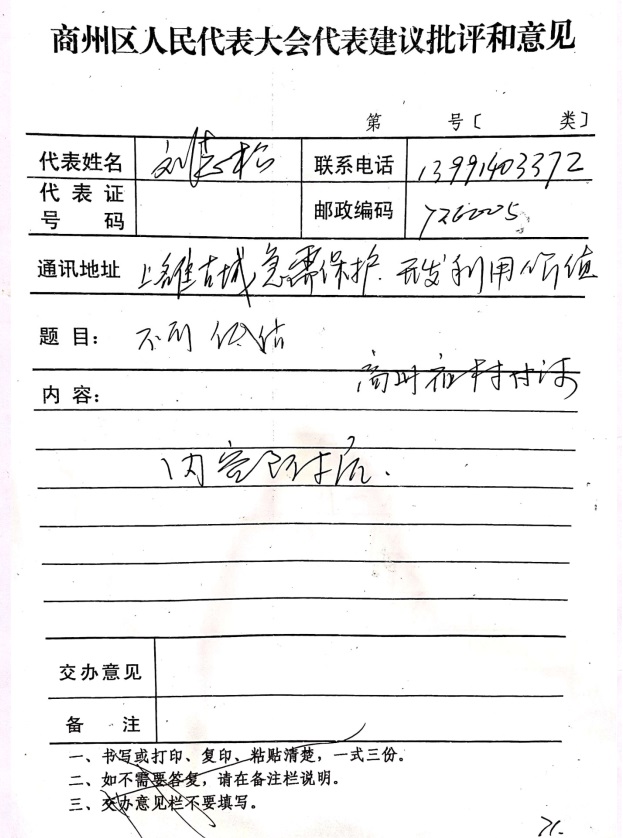 商州区人民代表大会代表建议批评和意见
第 号〔 类〕
代表姓名 刘 松 联系电话 13991403372
代表证号码 邮政编码 726005
通讯地址 上雒古城急需保护.开发利用价值
题目: 不可低估
商州
内容:
内容附后.
交办意见
备 注
一、书写或打印、复印、粘贴清楚,一式三份。
二、如不需要答复,请在备注栏说明。
三、交办意见栏不要填写。
71.